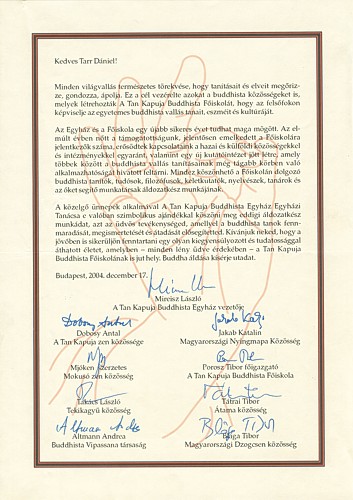 Kedves Tarr Dániel!
Minden világvallás természetes törekvése, hogy tanításait és elveit megőrizze,
gondozza, ápolja. Ez a cél vezérelte azokat a buddhista közösségeket is,
melyek létrehozták A Tan Kapuja Buddhista Főiskolát, hogy az felsőfokon
képviselje az egyetemes buddhista vallás tanait, eszméit és kultúráját.
Az Egyház és a Főiskola egy újabb sikeres évet tudhat maga mögött. Az elmúlt
évben nőtt a támogatottságunk, jelentősen emelkedett a Főiskolára
jelentkezők száma, erősödtek kapcsolataink a hazai és külföldi közösségekkel
és intézményekkel egyaránt, valamint egy új kutatóintézet jött létre, amely
többek között a buddhista vallás tanításainak még tágabb körben való
alkalmazhatóságát hivatott feltárni. Mindez köszönhető a Főiskolán dolgozó
buddhista tanítók, tudósok, filozófusok, keletkutatók, nyelvészek, tanárok és
az őket segítő munkatársak áldozatkész munkájának.
A közelgő ünnepek alkalmával A Tan Kapuja Buddhista Egyház Egyházi
Tanácsa e valóban szimbolikus ajándékkal köszöni meg eddigi áldozatkész
munkádat, azt az üdvös tevékenységed, amellyel a buddhista tanok fennmaradását,
megismertetését és átadását elősegítetted. Kívánjuk neked, hogy a
jövőben is sikerüljön fenntartani egy olyan kiegyensúlyozott és tudatossággal
áthatott életet, amelyben – minden lény üdve érdekében – a Tan Kapuja
Buddhista Főiskolának is jut hely. Buddha áldása kísérje utadat.
Budapest, 2004. december 17.
Mireisz László
A Tan Kapuja Buddhista Egyház vezetője
Dobosy Antal
Dobosy Antal
A Tan Kapuja zen közössége
Jakab Katalin
Magyarországi Nyingmapa Közösség
Mjóken szerzetes
Mokusó zen közösség
Porosz Tibor főigazgató
A Tan Kapuja Buddhista Főiskola
Takács László
Tekikagyű közösség
Tátrai Tibor
Átama közösség
Altmann Andrea
Buddhista Vipassana társaság
Béliga Tibor
Magyarországi Dzogcsen közösség